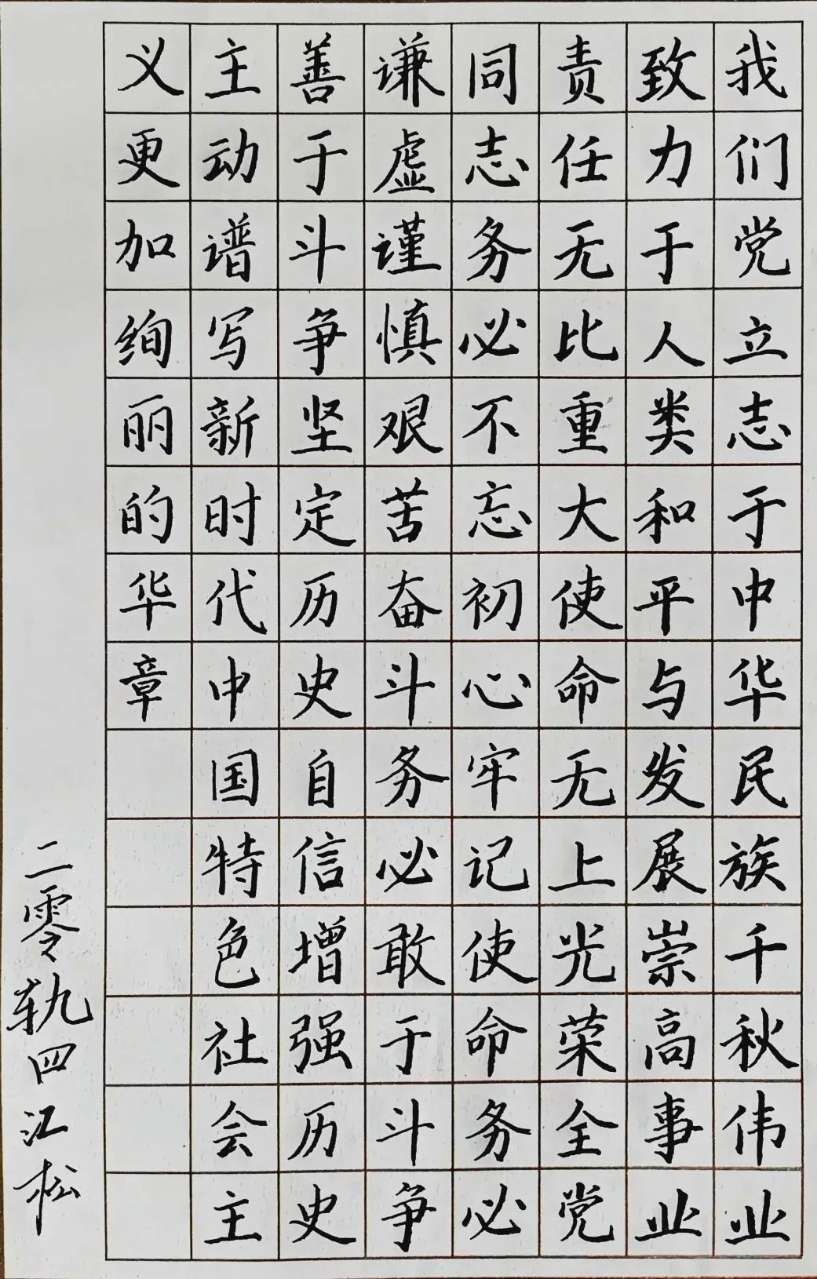 我们党立志于中华民族千秋伟业
致力于人类和平与发展崇高事业
责任无比重大使命无上光荣全党
同志务必不忘初心牢记使命务必
谦虚谨慎艰苦奋斗务必敢于斗争
善于斗争坚定历史自信增强历史
主动谱写新时代中国特色社会主
义更加绚丽的华章
二零轨四江松